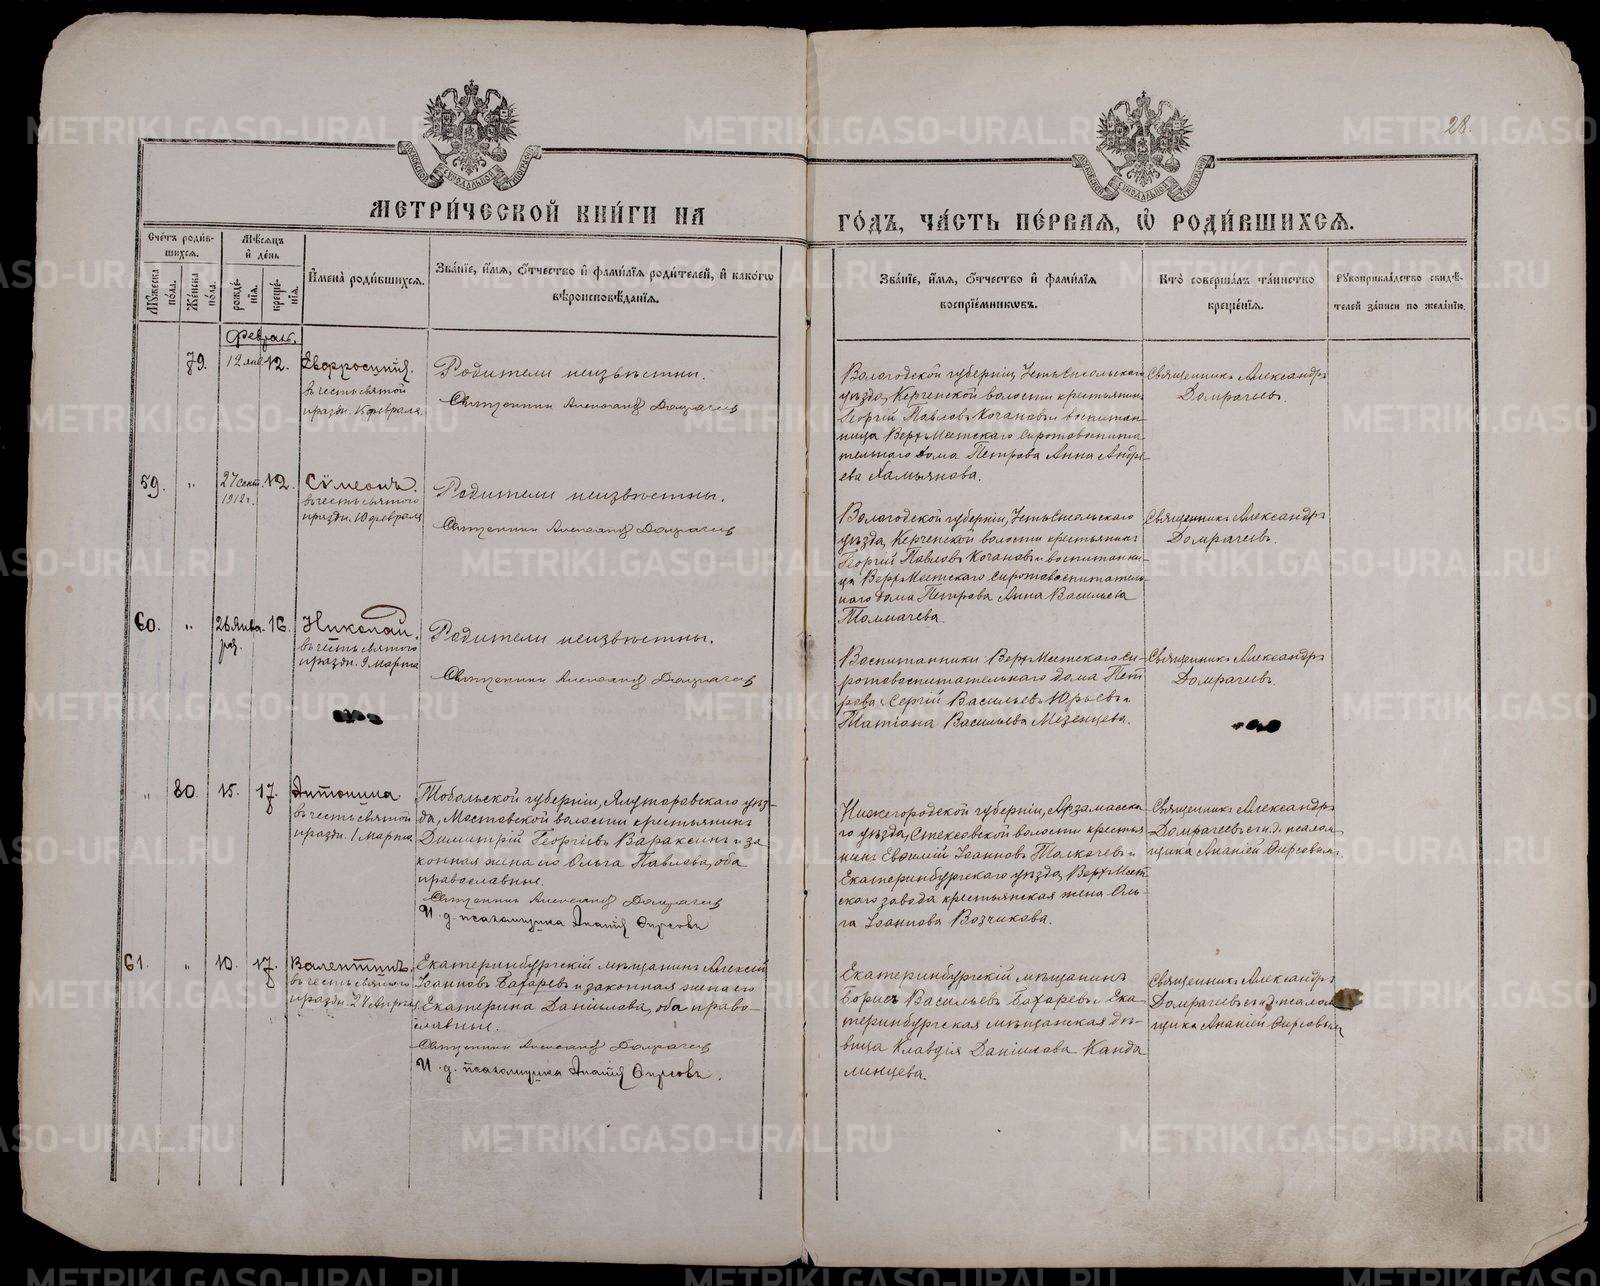 28.
МЕТРИ́ЧЕСКОЙ КНИ́ГИ НА
ГО́ДЪ, ЧА́СТЬ ПЕ́РВАЯ, Ѡ҆ РОДИ́ВШИХСЯ.
Сче́тъ роди́в-
шихся.
Му́жеска
по́ла.
Же́нска
по́ла.
Мѣ́сяцъ
и҆ де́нь
рожде́-
нія.
креще́-
нія.
И҆мена̀ роди́вшихся.
Зва́ніе, и҆́мя, ѻ҆́тчество и҆ фами́лія роди́телей, и҆ како́гѡ
вѣроисповѣ́данія.
Зва́ніе, и҆́мя, ѻ҆́тчество и҆ фами́лія
воспріе́мниковъ.
Кто̀ соверша́лъ та́инство
креще́нія.
Рукоприкла́дство свидѣ́-
телей за́писи по жела́нію.
Февраль.
79.
12 янв.
12.
Евфросинія.
въ честь святой
праздн. 15 февраля
Родители неизвѣстны.
Священникъ Александръ Домрачевъ
Вологодской губерніи, Устьсысольскаго
уѣзда, Керченской волости крестьянинъ
Георгій Павловъ Качановъ и воспитан-
ница Верх-Исетскаго сиротовоспита-
тельнаго дома Петрова Анна Андре-
ева Хамьянова.
Священникъ Александръ
Домрачевъ.
59.
"
27 сент.
1912 г.
12.
Сѵмеонъ.
въ честь святого
праздн. 10 февраля
Родители неизвѣстны.
Священникъ Александръ Домрачевъ
Вологодской губерніи, Устьсысольскаго
уѣзда, Керченской волости крестьянинъ
Георгій Павловъ Качановъ и воспитанни-
ца Верх-Исетскаго сиротовоспитатель-
наго дома Петрова Анна Васильева
Толмачева.
Священникъ Александръ
Домрачевъ.
60.
"
26 янва-
ря.
16.
Николай.
въ честь святого
праздн. 9 марта
Родители неизвѣстны.
Священникъ Александръ Домрачевъ
Воспитанники Верх-Исетскаго си-
ротовоспитательнаго дома Пет-
рова: Сергій Васильевъ Юрьевъ и
Татіана Васильева Мезенцева.
Священникъ Александръ
Домрачевъ.
"
80.
15.
17.
Антонина.
въ честь святой
праздн. 1 марта
Тобольской губерніи, Ялуторовскаго уѣз-
да, Мостовской волости крестьянинъ
Димитрій Георгіевъ Вараксинъ и за-
конная жена его Ольга Павлова, оба
православные.
Священникъ Александръ Домрачевъ
И. д. псаломщика Ананій Фирсовъ
Нижегородской губерніи, Арзамасска-
го уѣзда, Стексовской волости крестья-
нинъ Евѳимій Іоанновъ Толкачевъ и
Екатеринбургскаго уѣзда, Верх-Исет-
скаго завода крестьянская жена Оль-
га Іоаннова Возчикова.
Священникъ Александръ
Домрачевъ съ и. д. псалом-
щика Ананіей Фирсовымъ
61.
"
10.
17.
Валентинъ.
въ честь святого
праздн. 24 апрѣля
Екатеринбургскій мѣщанинъ Алексій
Іоанновъ Бахаревъ и законная жена его
Екатерина Даніилова, оба право-
славные.
Священникъ Александръ Домрачевъ
И. д. псаломщика Ананій Фирсовъ.
Екатеринбургскій мѣщанинъ
Борисъ Васильевъ Бахаревъ и Ека-
теринбургская мѣщанская дѣ-
вица Клавдія Даніилова Канда-
линцева.
Священникъ Александръ
Домрачевъ съ и. д. псалом-
щика Ананіей Фирсовымъ
METRIKI.GASO-URAL.RU